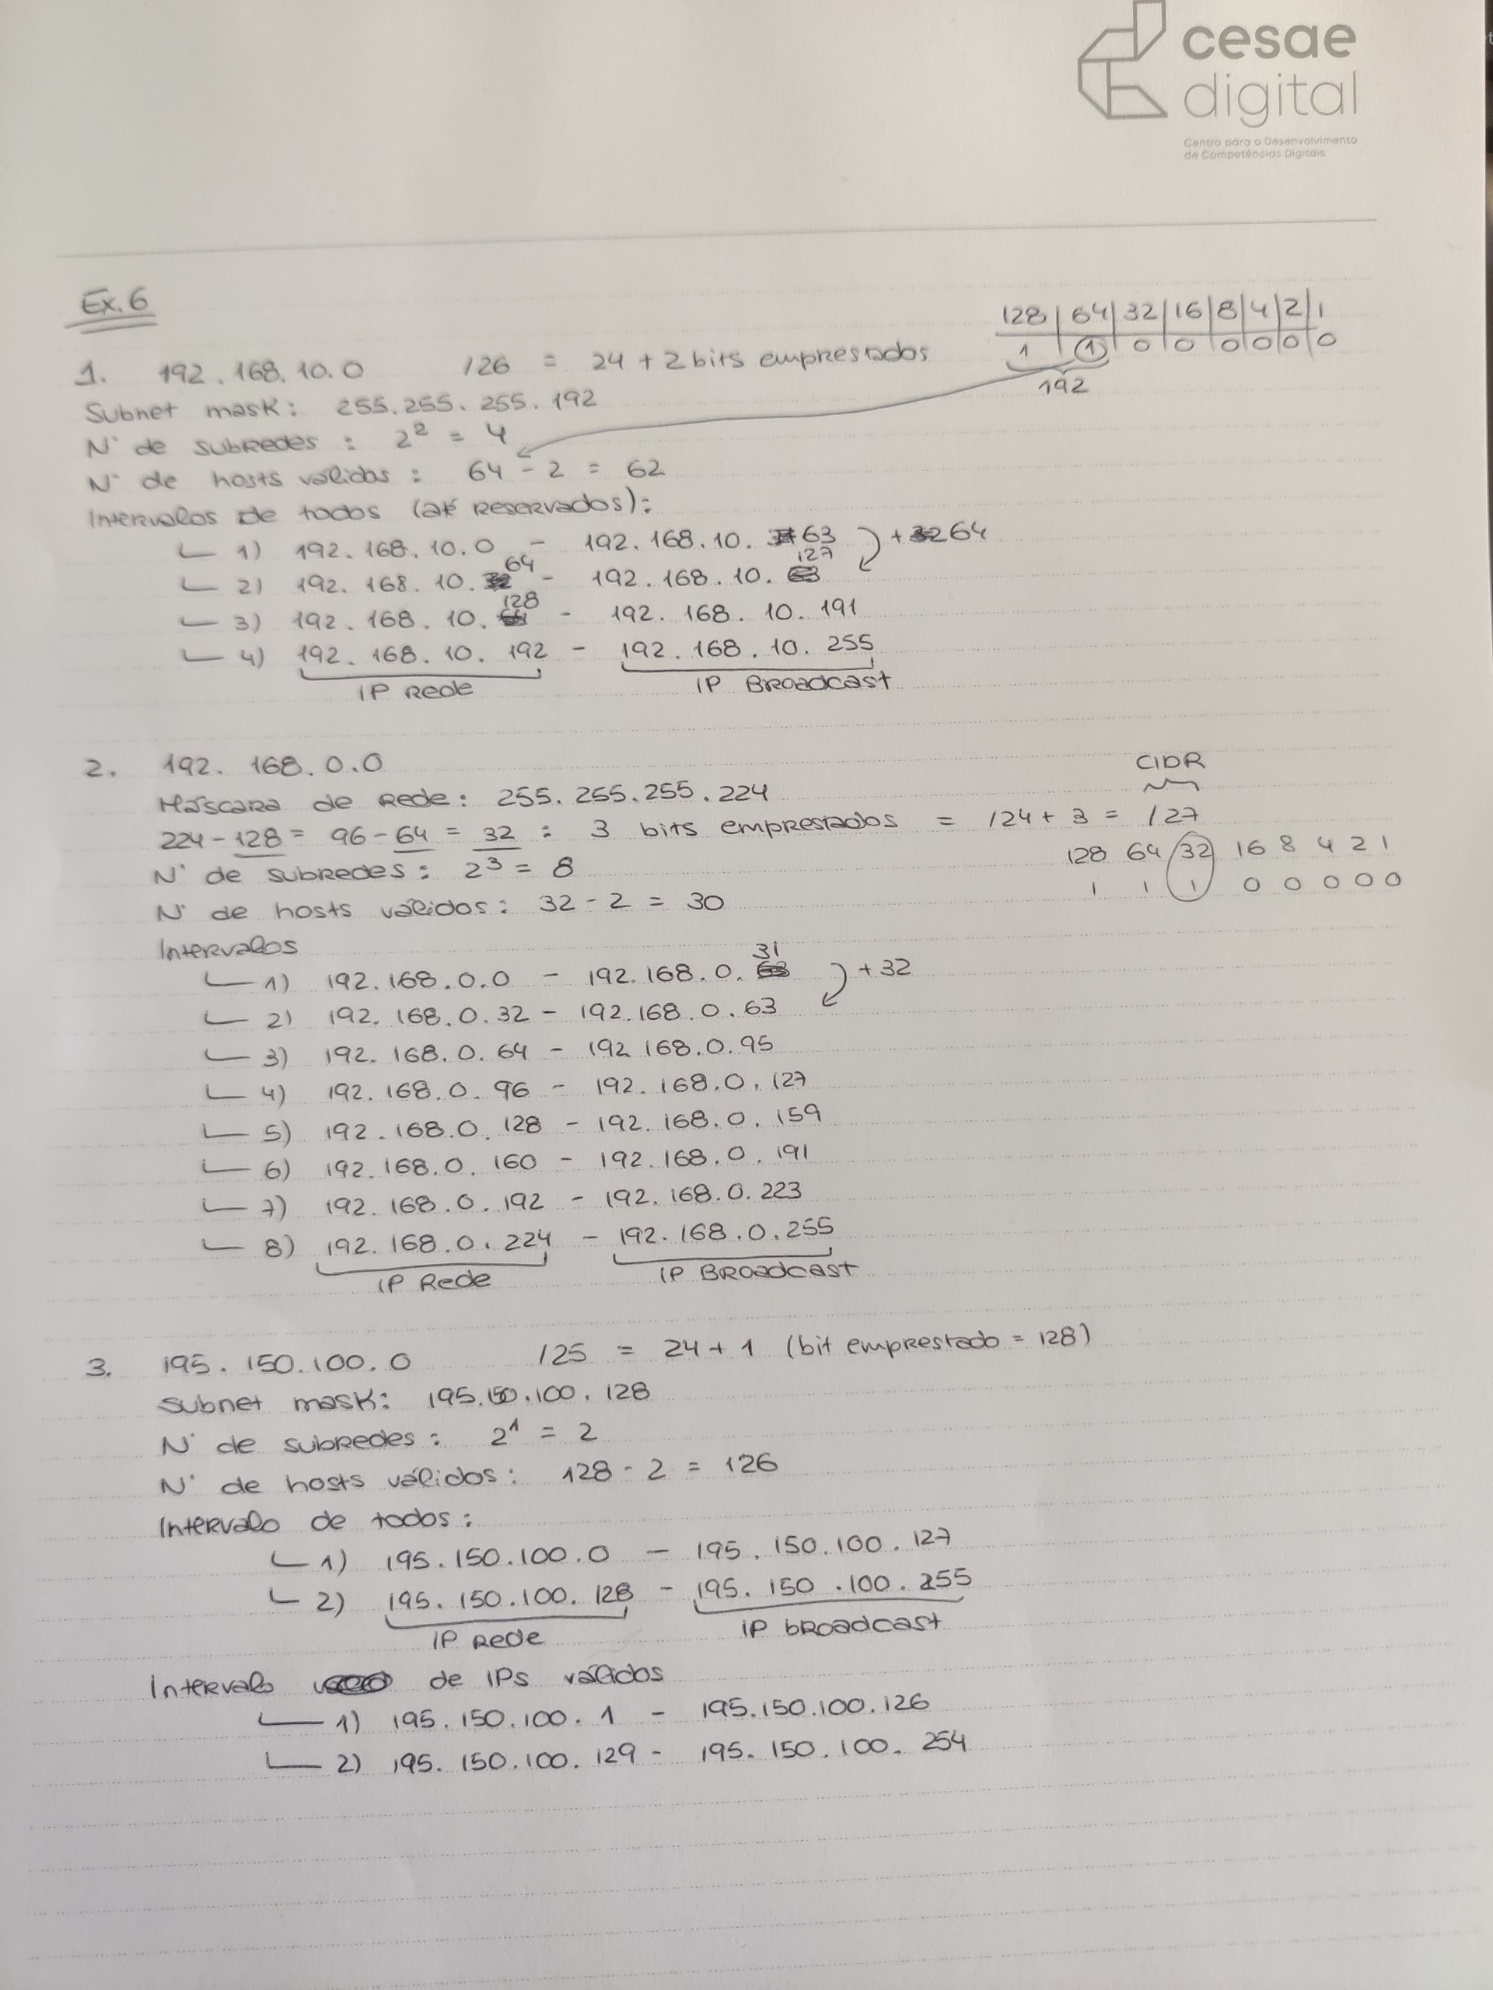 cesae
digital
Centro para o Desenvolvimento
de Competências Digitais
Ex. 6
128 | 64 | 32 | 16 | 8 | 4 | 2 | 1
1 1 0 0 0 0 0 0
192
1. 192.168.10.0 /26 = 24 + 2 bits emprestados
Subnet mask: 255.255.255.192
Nº de subredes: 2² = 4
Nº de hosts válidos: 64 - 2 = 62
Intervalos de todos (até reservados):
1) 192.168.10.0 - 192.168.10.63 +64
2) 192.168.10.64 - 192.168.10.127
3) 192.168.10.128 - 192.168.10.191
4) 192.168.10.192 - 192.168.10.255
IP Rede IP Broadcast
2. 192.168.0.0
CIDR
Máscara de Rede: 255.255.255.224
224 - 128 = 96 - 64 = 32 : 3 bits emprestados = /24 + 3 = /27
128 64 32 16 8 4 2 1
1 1 1 0 0 0 0 0
Nº de subredes: 2³ = 8
Nº de hosts válidos: 32 - 2 = 30
Intervalos
1) 192.168.0.0 - 192.168.0.31 +32
2) 192.168.0.32 - 192.168.0.63
3) 192.168.0.64 - 192 168.0.95
4) 192.168.0.96 - 192.168.0.127
5) 192.168.0.128 - 192.168.0.159
6) 192.168.0.160 - 192.168.0.191
7) 192.168.0.192 - 192.168.0.223
8) 192.168.0.224 - 192.168.0.255
IP Rede IP Broadcast
3. 195.150.100.0 /25 = 24 + 1 (bit emprestado = 128)
Subnet mask: 195.150.100.128
Nº de subredes: 2¹ = 2
Nº de hosts válidos: 128 - 2 = 126
Intervalo de todos:
1) 195.150.100.0 - 195.150.100.127
2) 195.150.100.128 - 195.150.100.255
IP Rede IP broadcast
Intervalo de IPs válidos
1) 195.150.100.1 - 195.150.100.126
2) 195.150.100.129 - 195.150.100.254